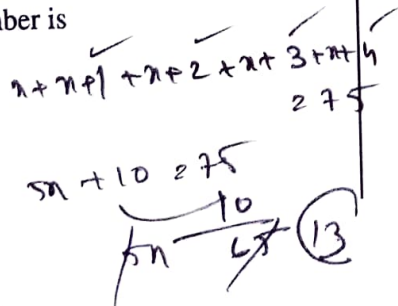 ber is
n + n+1 + n+2 + n+ 3 + n+ 4
= 75
5n + 10 = 75
10
5n 65 13